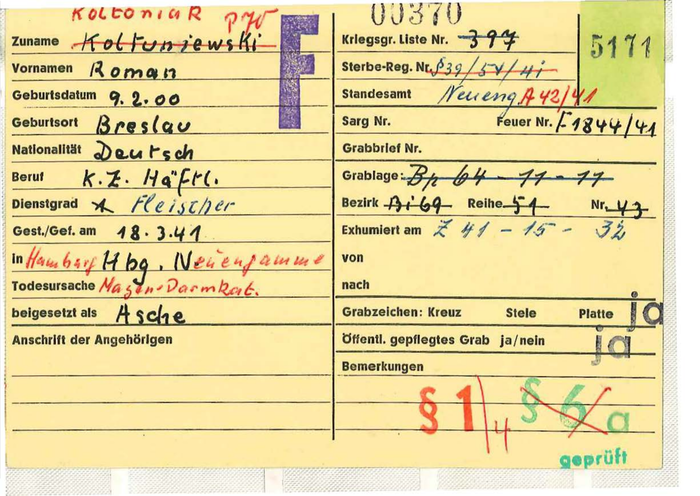 Koltoniak p70
Zuname Koltuniewski F
Vornamen Roman
Geburtsdatum 9.2.00
Geburtsort Breslau
Nationalität Deutsch
Beruf K.Z. Häftl.
Dienstgrad Fleischer
Gest./Gef. am 18.3.41
in Hamburg Hbg. Neuengamme
Todesursache Magen-Darmkat.
beigesetzt als Asche
Anschrift der Angehörigen
00370
Kriegsgr. Liste Nr. 397
5171
Sterbe-Reg. Nr. 839/54/41
Standesamt Neueng A42/41
Sarg Nr. Feuer Nr. F1844/41
Grabbrief Nr.
Grablage: Bp 64-11-11
Bezirk Bi69 Reihe 51 Nr. 43
Exhumiert am Z 41-15-32
von
nach
Grabzeichen: Kreuz Stele Platte ja
Öffentl. gepflegtes Grab ja/nein ja
Bemerkungen
§ 1/4 § 6/a
geprüft